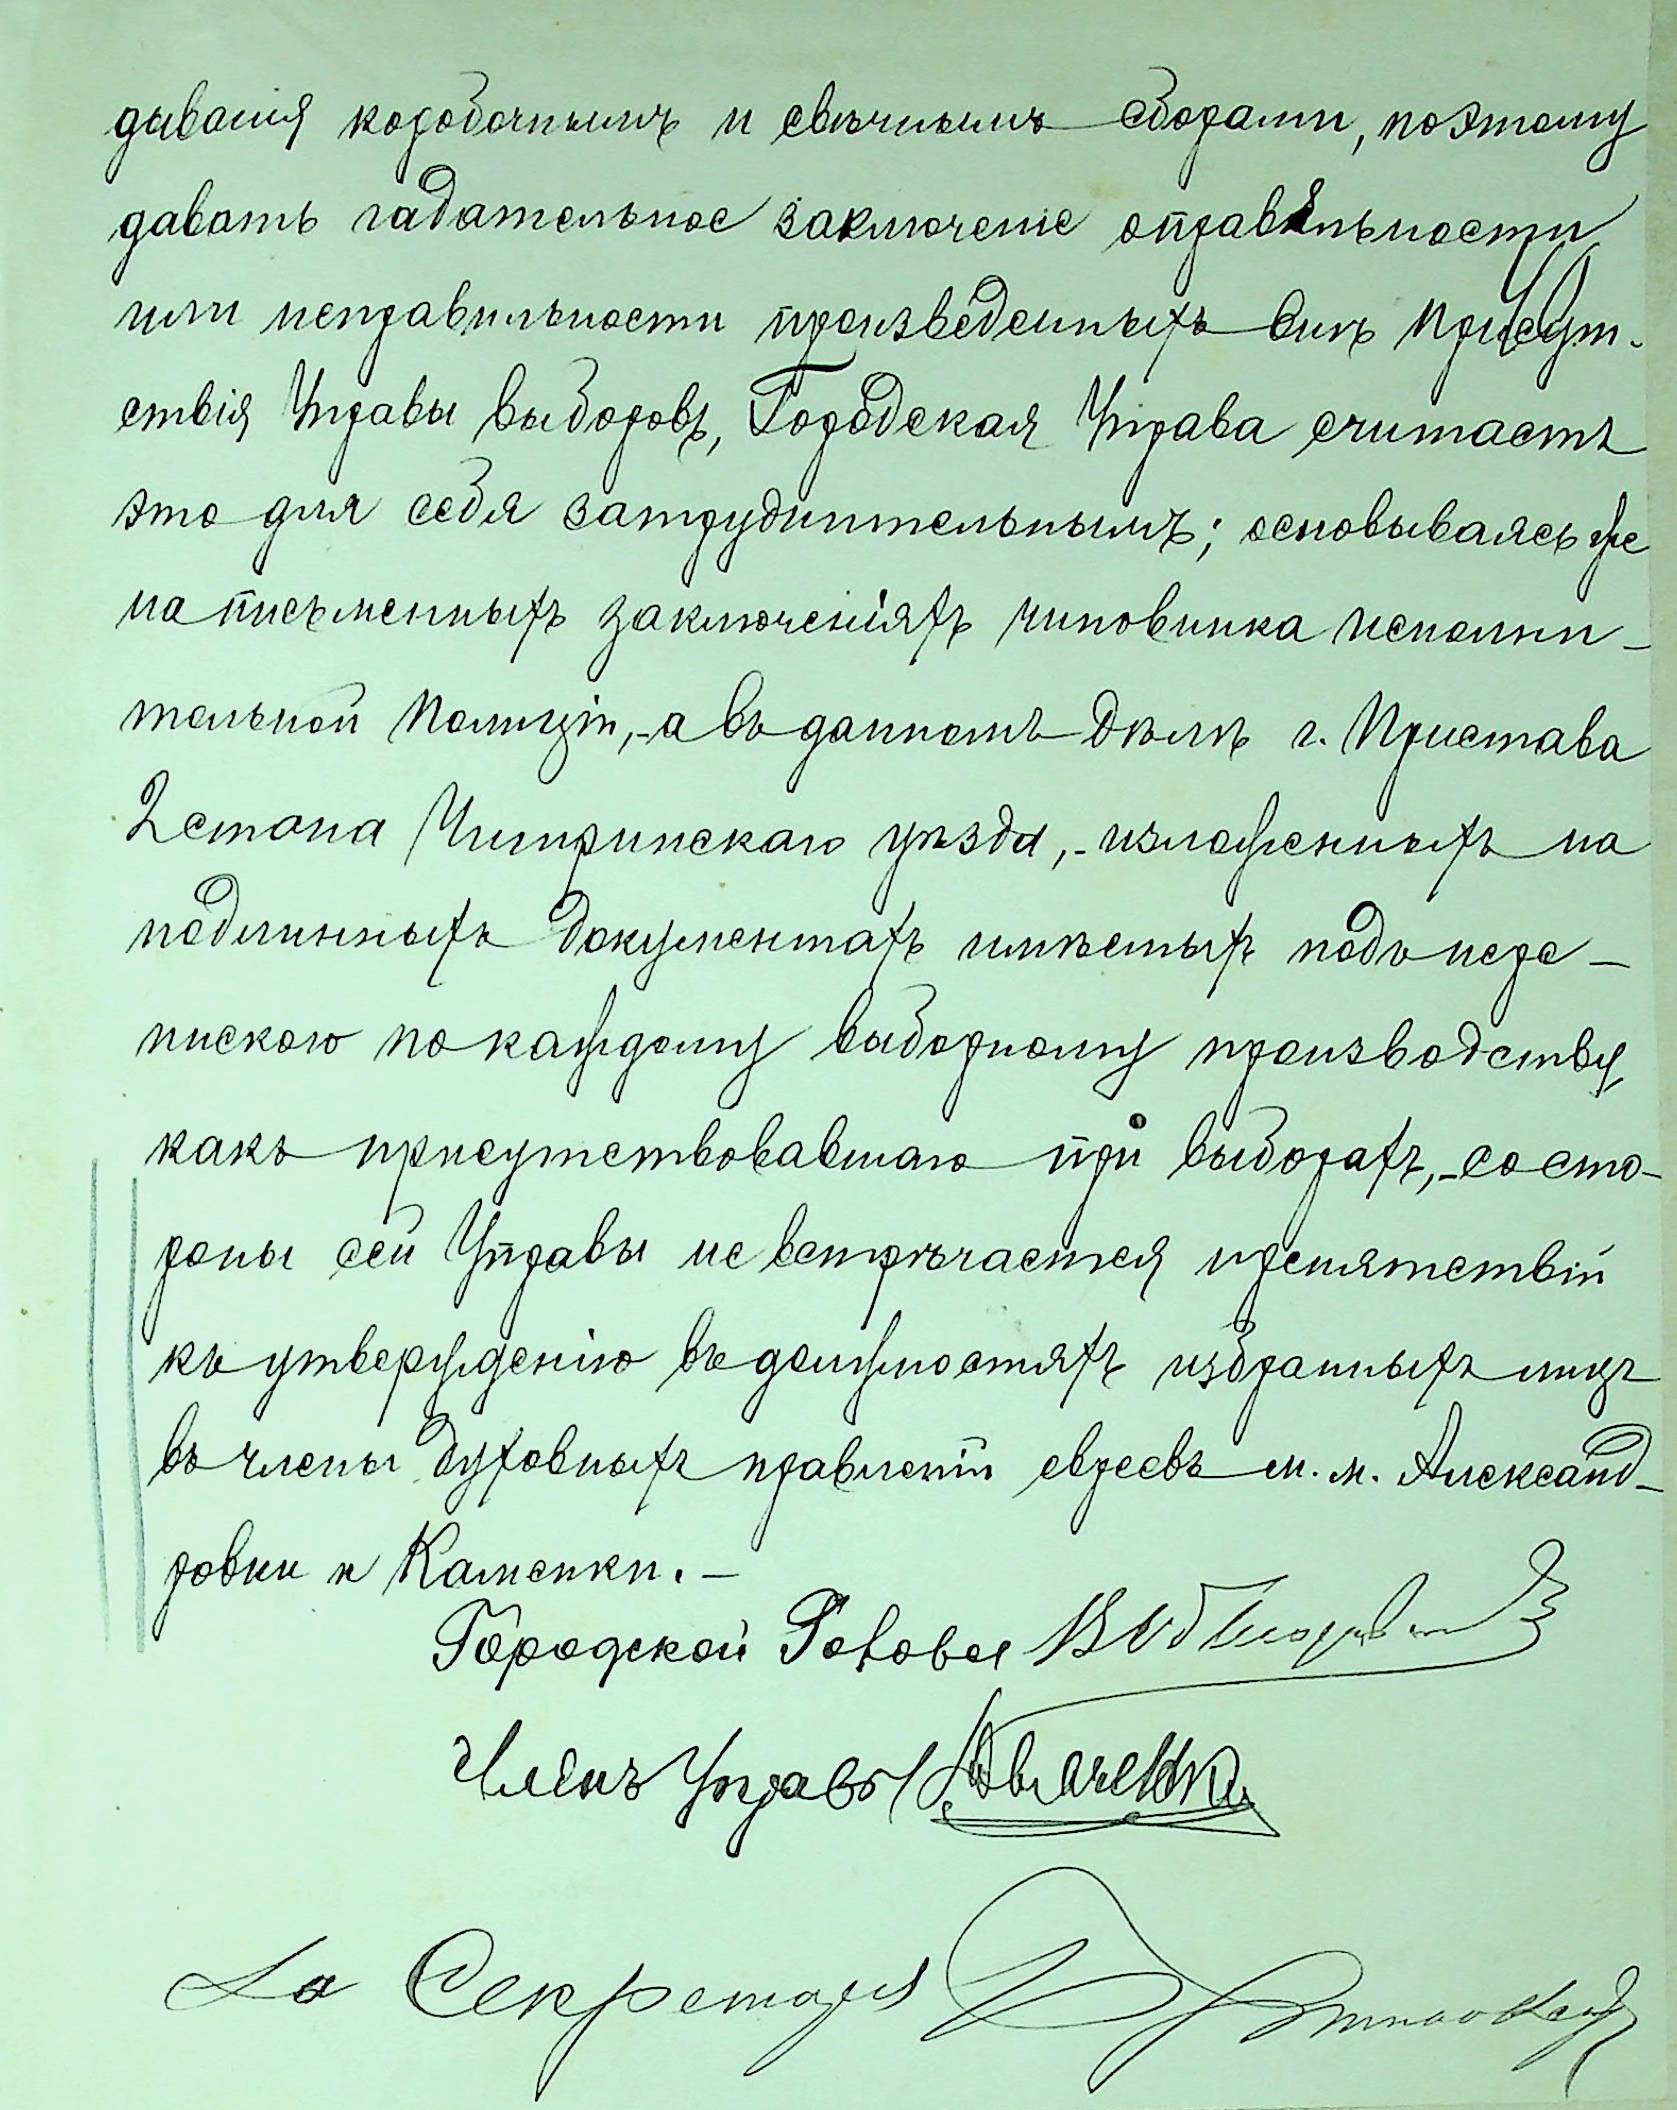 дыванія коробочнымъ и свѣчнымъ сборами, поэтому
давать гадательное заключеніе оправильности
или неправильности произведенныхъ внѣ Присут-
ствія Управы выборовъ, Городская Управа считаетъ
это для себя затруднительнымъ; основываясь же
на письменныхъ заключеніяхъ чиновника исполни-
тельной Полиціи,-а въ данномъ дѣлѣ г. Пристава
2 стана Чигиринскаго уѣзда,-изложенныхъ на
подлинныхъ документахъ имѣемыхъ подъ пере-
пискою по каждому выборному производству,
какъ присутствовавшаго при выборахъ,-со сто-
роны сей Управы не встрѣчается препятствій
къ утвержденію въ должностяхъ избранныхъ лицъ
въ члены духовныхъ правленій евреевъ м. м. Александ-
ровки и Каменки.-
Городской Голова
Членъ Управы
За Секретаря